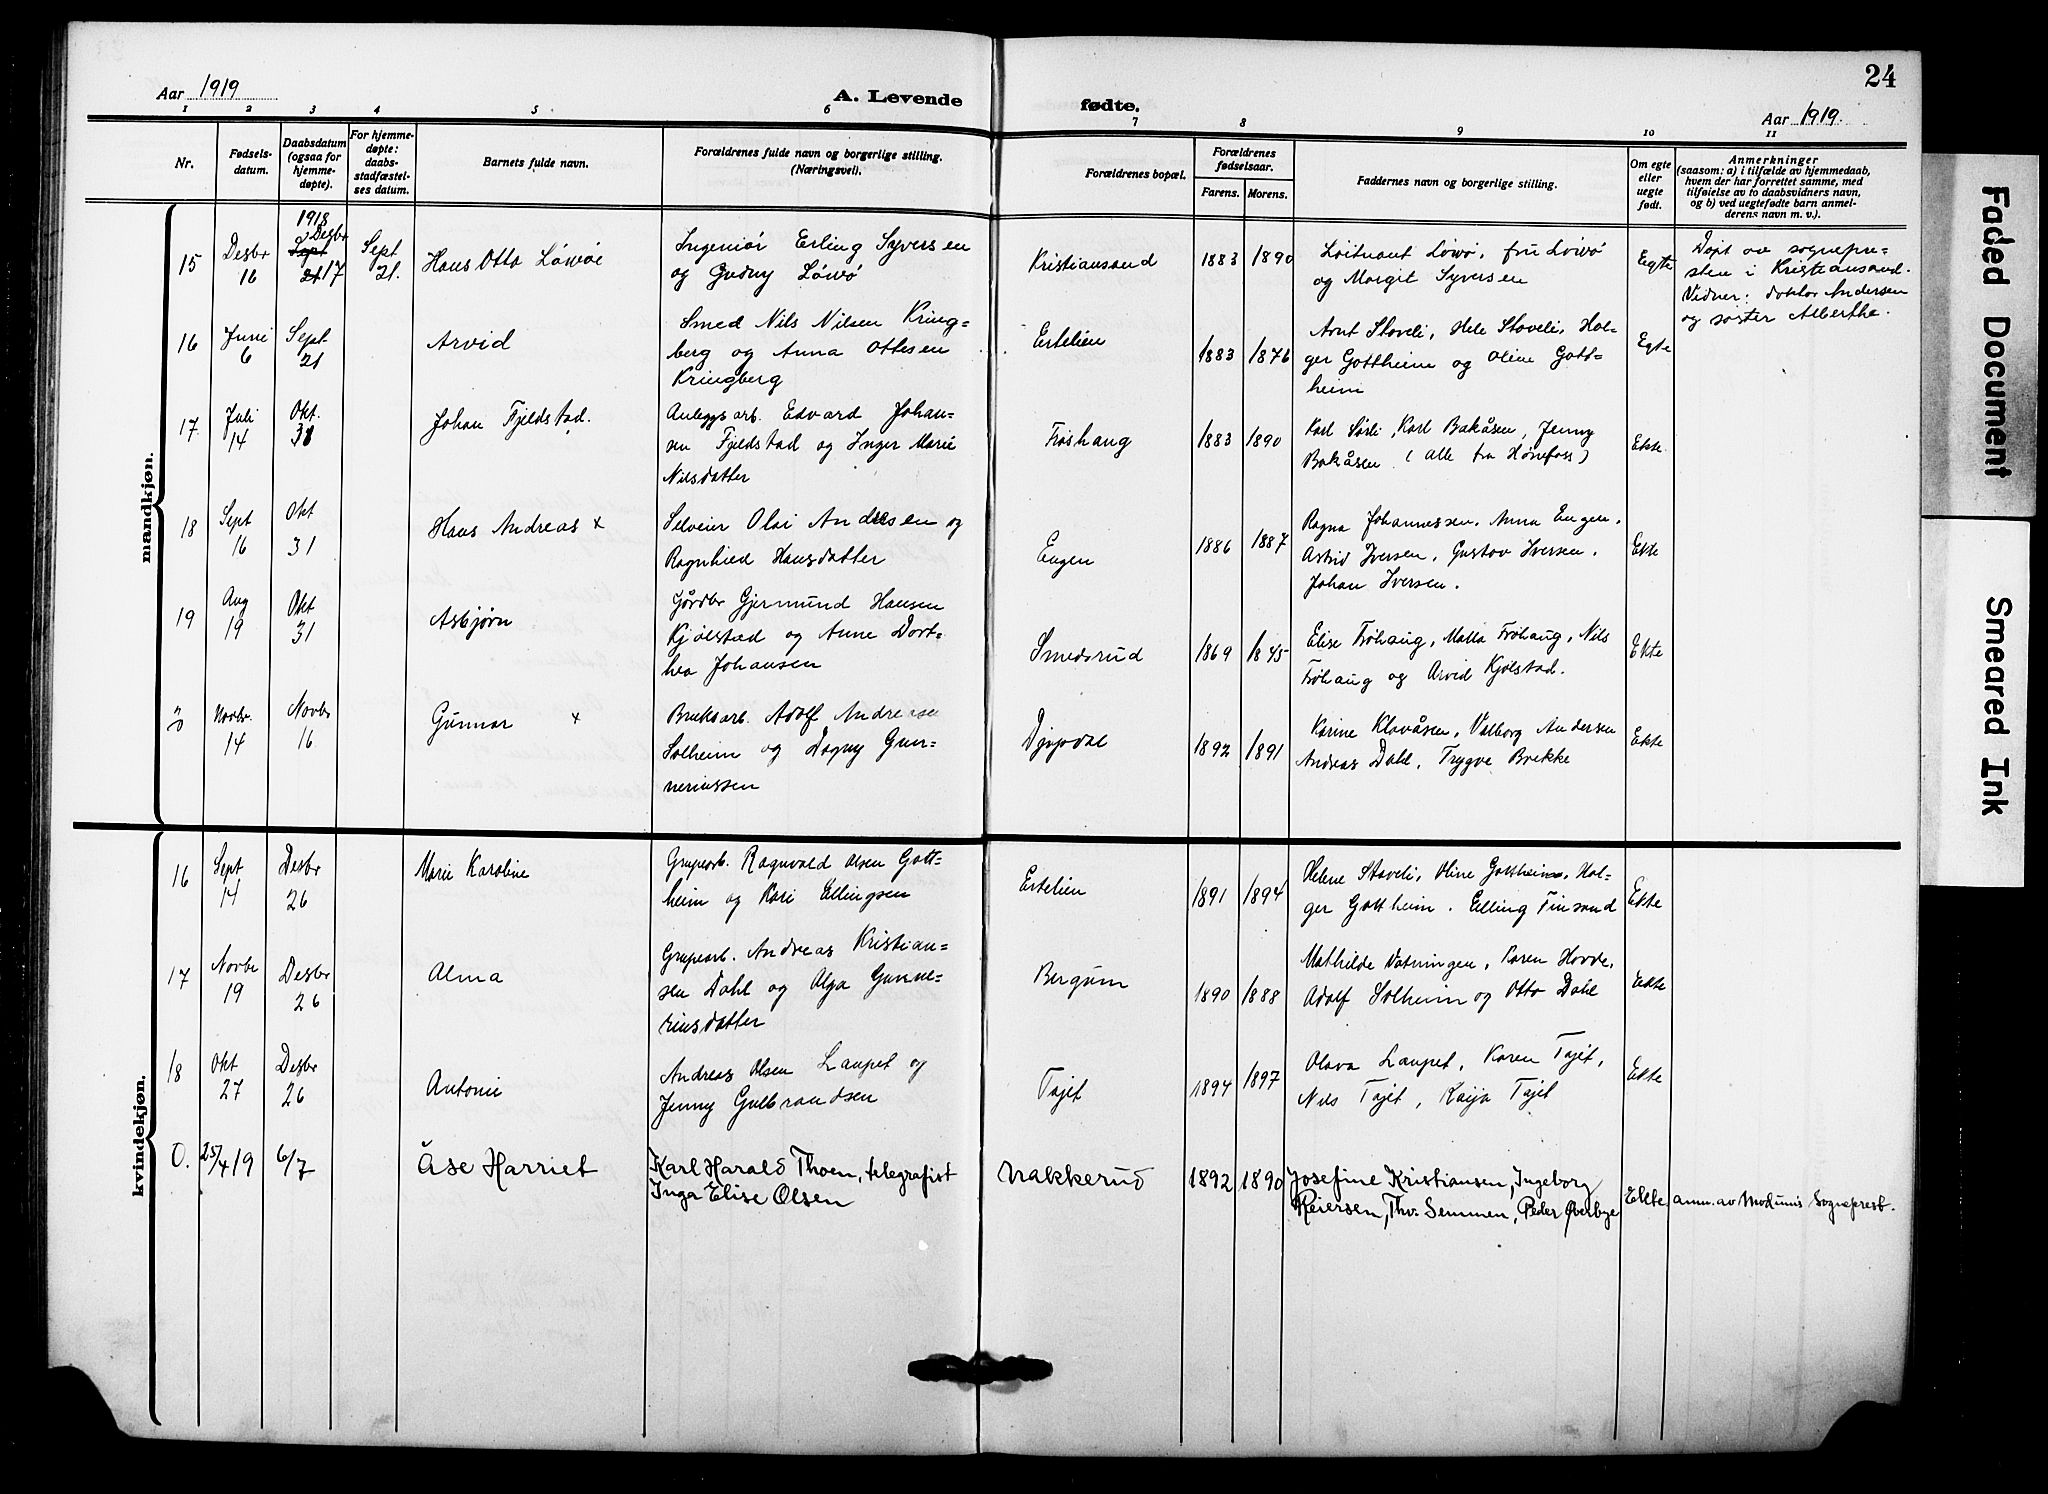 24
Aar 1919
A. Levende
fødte.
Aar 1919.
1 2 3 4 5 6 7 8 9 10 11
Nr.
Fødsels-
datum.
Daabsdatum
(ogsaa for
hjemme-
døpte).
For hjemme-
døpte:
daabs-
stadfæstel-
ses datum.
Barnets fulde navn.
Forældrenes fulde navn og borgerlige stilling.
(Næringsvei).
Forældrenes bopæl.
Forældrenes
fødselsaar.
Farens. Morens.
Faddernes navn og borgerlige stilling.
Om egte
eller
uegte
født.
Anmerkninger
(saasom: a) i tilfælde av hjemmedaab,
hvem der har forrettet samme, med
tilføielse av to daabsvidners navn,
og b) ved uegtefødte barn anmel-
derens navn m. v.).
mandkjøn.
15
Desbr
16
1918
Desbr
Sept
21 17
Sept
21.
Hans Otto Löwö
Ingeniör Erling Syversen
og Gudny Löwö
Kristiansand
1883 1890
Löitnant Löwö, fru Löwö
og Margit Syversen
Egte
Döpt av sognepre-
sten i Kristiansand.
Vidner: doktor Andersen
og söster Alberthe.
16
Juni
6
Sept
21
Arvid
Smed Nils Nilsen Kring-
berg og Anna Ottesen
Kringberg
Estelien
1883 1876
Arnt Staveli, Hele Staveli, Hol-
ger Gottheim og Oline Gott-
heim
Egte
17.
Juli
14
Okt.
31
Johan Fjeldstad.
Anleggsarb. Edvard Johan-
sen Fjeldstad og Inger Marie
Nilsdatter
Fröshaug
1883 1890
Karl Sörli, Karl Bakåsen, Jenny
Bakåsen. (alle fra Hönefoss)
Ekte.
18
Sept
16
Okt
31
Hans Andreas x
Selveier Olai Andresen og
Ragnhild Hansdatter
Engen
1886 1887
Ragna Johannessen, Anna Engen,
Astrid Iversen, Gustav Iversen,
Johan Iversen.
Ekte
19
Aug
19
Okt
31
Asbjørn
Gårdbr Gjermund Hansen
Kjölstad og Anne Dort-
hea Johansen
Smedsrud
1869 1845
Elise Fröhaug, Malla Fröhaug, Nils
Fröhaug og Arvid Kjölstad.
Ekte
Novbr.
14
Novbr
16
Gunnar x
Bruksarb. Adolf Andreasen
Solheim og Dagny Gun-
neriussen
Dypdal
1892 1891
Karine Klavåsen, Valborg Andersen
Andreas Dahl, Trygve Brekke
Ekte
kvindekjøn.
16
Sept
14
Desbr
26
Marie Karoline
Grupearb. Ragnvald Olsen Gott-
heim og Kari Ellingsen
Estelien
1891 1894
Helene Staveli, Oline Gottheim, Hol-
ger Gottheim. Elling Finsand
Ekte
17
Novbr
19
Desbr
26
Alma
Grupearb. Andreas Kristian-
sen Dahl og Olga Gunne-
riusdatter
Bergum
1890 1888
Mathilde Vatningen, Karen Hovde,
Adolf Solheim og Otto Dahl
Ekte
18
Okt
27
Desbr
26
Antonie
Andreas Olsen Laupet og
Jenny Gulbrandsen
Tajet
1894 1897
Olava Laupet, Karen Tajet,
Nils Tajet, Kaija Tajet
Ekte
0.
25/4 19
6/7
Åse Harriet
Karl Harald Thoen, telegrafist
Inga Elise Olsen
Nakkerud
1892 1890
Josefine Kristiansen, Ingeborg
Reiersen, Thv. Semmen, Peder Øverbye
Ekte
anm. av Modums Sogneprest.
Faded Document
Smeared Ink